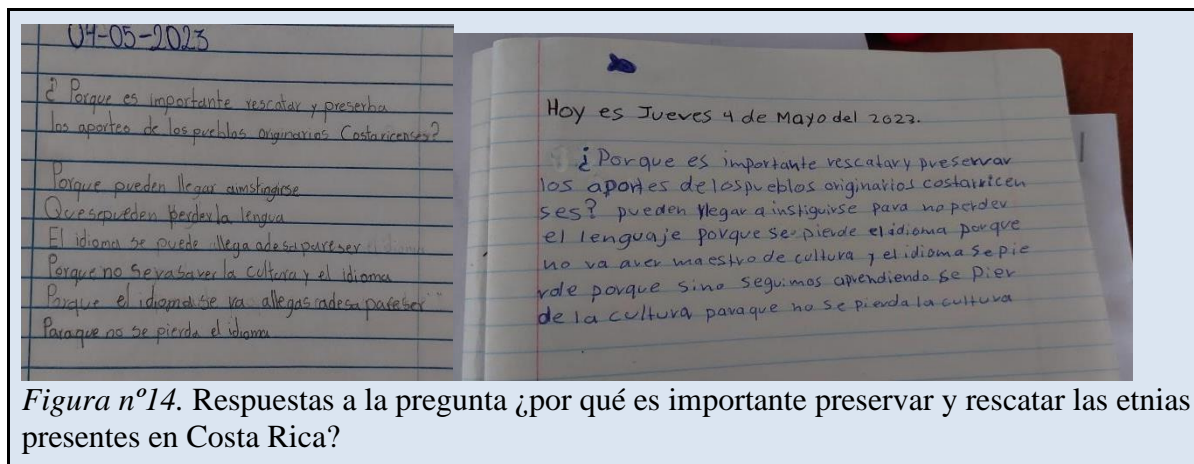 04-05-2023
¿Porque es importante rescatar y preserba
los aporteo de los pueblos originarios Costaricenses?
Porque pueden llegar
Quesepueden perder la lengua
El idioma se puede llega adesapareser
Porque no sevasaver la cultura y el idioma
Porque el idioma se va allegas adesapareser
Paraque no se pierda el idioma
Hoy es Jueves 4 de Mayo del 2023.
¿Porque es importante rescatar y preservar
los aportes de lospueblos originarios costarricen
ses? pueden llegar a instiguirse para no perder
el lenguaje porque se pierde el idioma porque
no va aver maestro de cultura y el idioma sepie
rde porque sino seguimos aprendiendo se pier
de la cultura paraque no se pierda la cultura
Figura nº14. Respuestas a la pregunta ¿por qué es importante preservar y rescatar las etnias
presentes en Costa Rica?